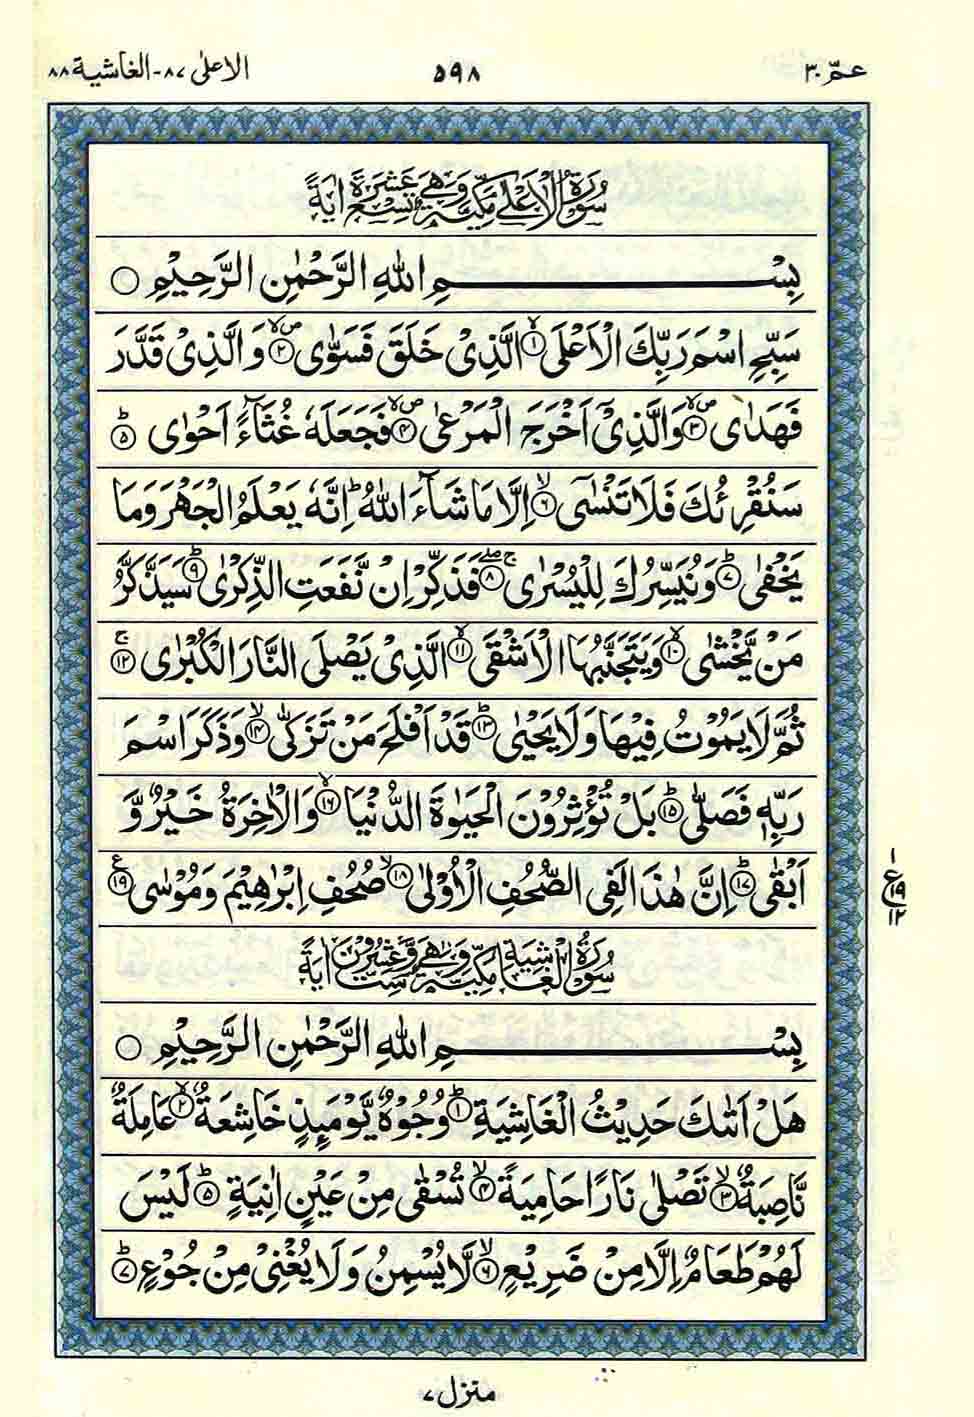 عمّ ٣٠
٥٩٨
الاعلى ٨٧-الغاشية ٨٨
سُوْرَةُ الْاَعْلٰى مَكِّيَّةٌ وَّهِيَ تِسْعَ عَشَرَةَ اٰيَةً
بِسْمِ اللّٰهِ الرَّحْمٰنِ الرَّحِيْمِ ○
سَبِّحِ اسْمَ رَبِّكَ الْاَعْلَى ۙ﴿١﴾ الَّذِيْ خَلَقَ فَسَوّٰى ۪ۙ﴿٢﴾ وَالَّذِيْ قَدَّرَ
فَهَدٰى ۪ۙ﴿٣﴾ وَالَّذِيْٓ اَخْرَجَ الْمَرْعٰى ۪ۙ﴿٤﴾ فَجَعَلَهٗ غُثَآءً اَحْوٰى ؕ﴿٥﴾
سَنُقْرِئُكَ فَلَا تَنْسٰٓى ۙ﴿٦﴾ اِلَّا مَا شَآءَ اللّٰهُ ؕ اِنَّهٗ يَعْلَمُ الْجَهْرَ وَمَا
يَخْفٰى ؕ﴿٧﴾ وَنُيَسِّرُكَ لِلْيُسْرٰى ۚۖ﴿٨﴾ فَذَكِّرْ اِنْ نَّفَعَتِ الذِّكْرٰى ؕ﴿٩﴾ سَيَذَّكَّرُ
مَنْ يَّخْشٰى ۙ﴿١٠﴾ وَيَتَجَنَّبُهَا الْاَشْقَى ۙ﴿١١﴾ الَّذِيْ يَصْلَى النَّارَ الْكُبْرٰى ۚ﴿١٢﴾
ثُمَّ لَا يَمُوْتُ فِيْهَا وَلَا يَحْيٰى ؕ﴿١٣﴾ قَدْ اَفْلَحَ مَنْ تَزَكّٰى ۙ﴿١٤﴾ وَذَكَرَ اسْمَ
رَبِّهٖ فَصَلّٰى ؕ﴿١٥﴾ بَلْ تُؤْثِرُوْنَ الْحَيٰوةَ الدُّنْيَا ۙ﴿١٦﴾ وَالْاٰخِرَةُ خَيْرٌ وَّ
اَبْقٰى ؕ﴿١٧﴾ اِنَّ هٰذَا لَفِي الصُّحُفِ الْاُوْلٰى ۙ﴿١٨﴾ صُحُفِ اِبْرٰهِيْمَ وَمُوْسٰى ﴿١٩﴾ ع
١
ع ١٩
١٢
سُوْرَةُ الْغَاشِيَةِ مَكِّيَّةٌ وَّهِيَ سِتٌّ وَّعِشْرُوْنَ اٰيَةً
بِسْمِ اللّٰهِ الرَّحْمٰنِ الرَّحِيْمِ ○
هَلْ اَتٰىكَ حَدِيْثُ الْغَاشِيَةِ ؕ﴿١﴾ وُجُوْهٌ يَّوْمَئِذٍ خَاشِعَةٌ ۙ﴿٢﴾ عَامِلَةٌ
نَّاصِبَةٌ ۙ﴿٣﴾ تَصْلٰى نَارًا حَامِيَةً ۙ﴿٤﴾ تُسْقٰى مِنْ عَيْنٍ اٰنِيَةٍ ؕ﴿٥﴾ لَيْسَ
لَهُمْ طَعَامٌ اِلَّا مِنْ ضَرِيْعٍ ۙ﴿٦﴾ لَّا يُسْمِنُ وَلَا يُغْنِيْ مِنْ جُوْعٍ ؕ﴿٧﴾
منزل ٧